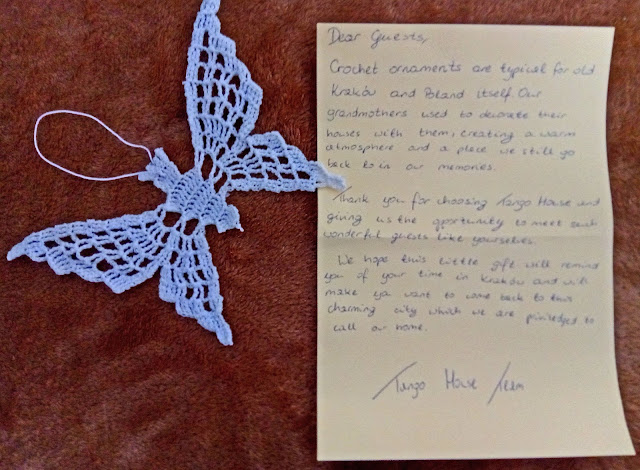 Dear Guests,
Crochet ornaments are typical for old
Kraków and Poland itself. Our
grandmothers used to decorate their
houses with them, creating a warm
atmosphere and a place we still go
back to in our memories.
Thank you for choosing Tango House and
giving us the oportunity to meet such
wonderful guests like yourselves.
We hope this little gift will remind
you of your time in Kraków and will
make you want to come back to this
charming city which we are priviledged to
call our home.
Tango House Team